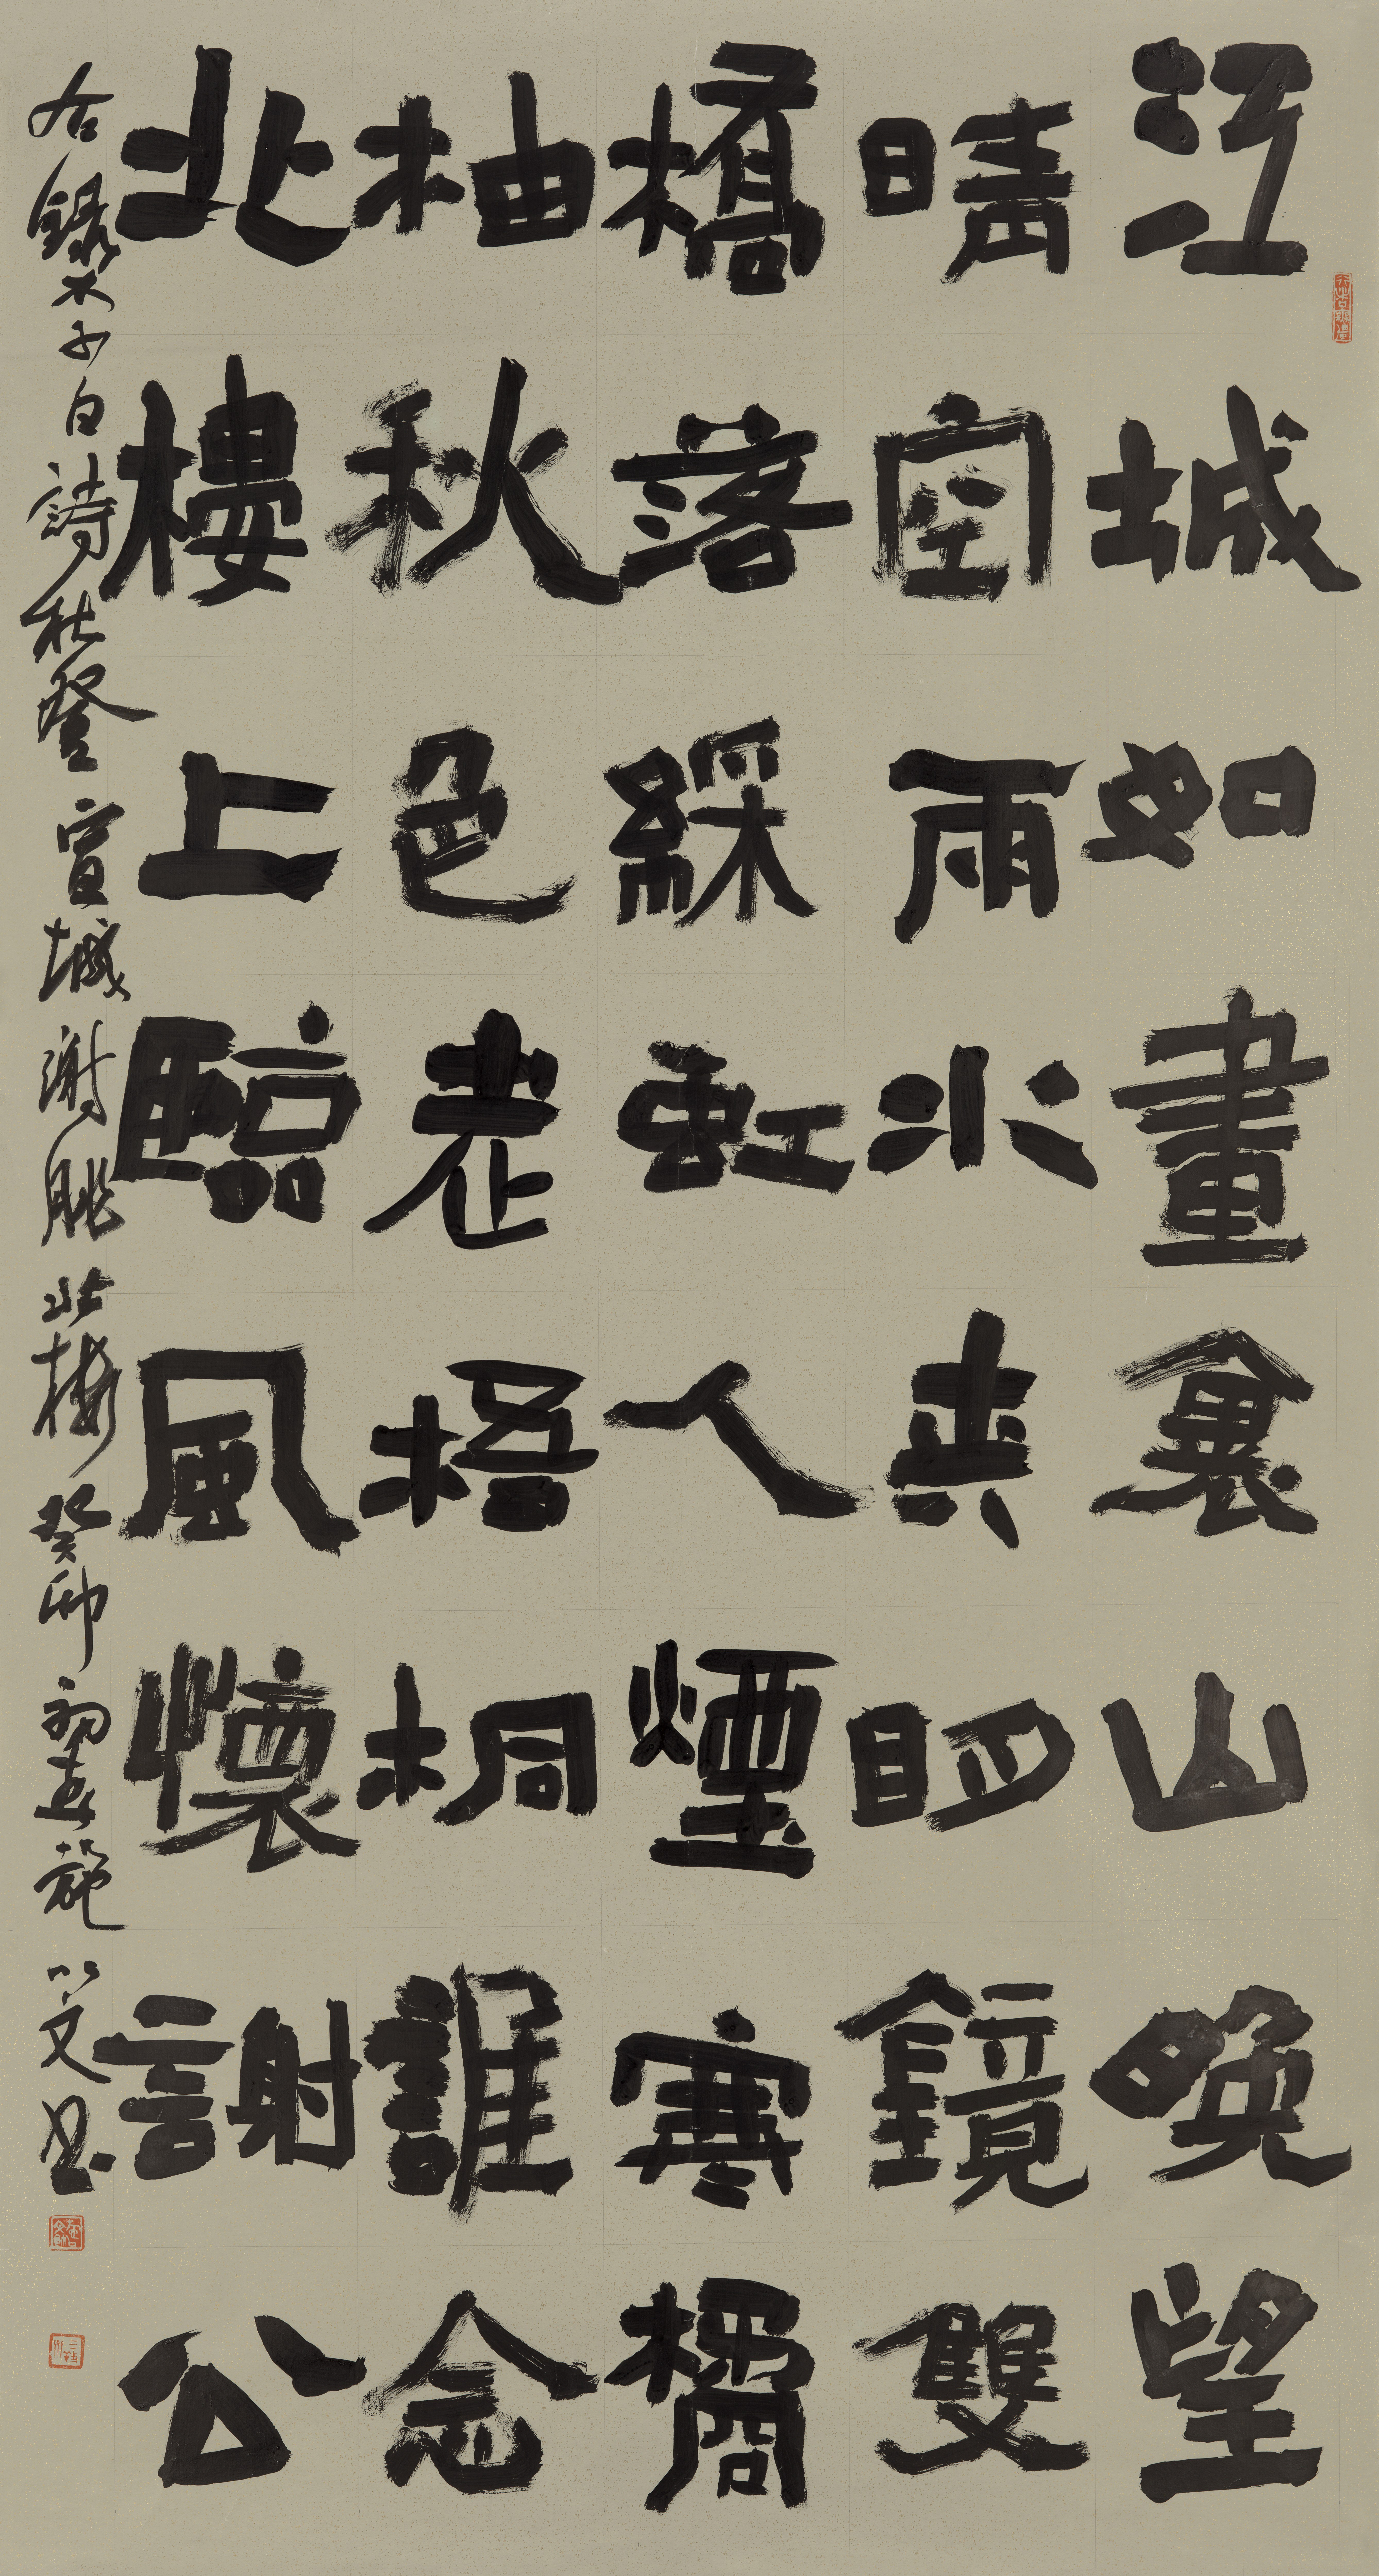 江城如畫裏山晚望
晴空兩水夾明鏡雙
橋落綵虹人煙寒橘
柚秋色老梧桐誰念
北樓上臨風懷謝公
右錄李白詩秋登宣城謝朓北樓癸卯初施以文書